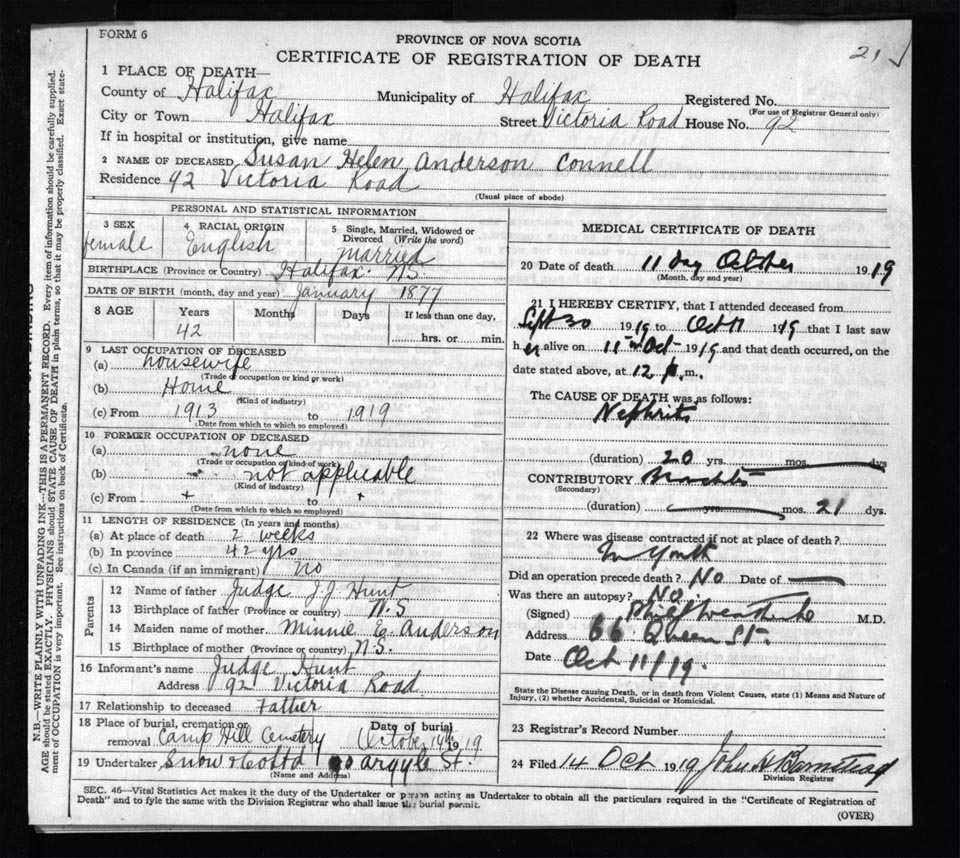 FORM 6
21
PROVINCE OF NOVA SCOTIA
CERTIFICATE OF REGISTRATION OF DEATH
N.B.—WRITE PLAINLY WITH UNFADING INK—THIS IS A PERMANENT RECORD. Every item of information should be carefully supplied.
AGE should be stated EXACTLY. PHYSICIANS should STATE CAUSE OF DEATH in plain terms, so that it may be properly classified. Exact state-
ment of OCCUPATION is very important. See instructions on back of Certificate.
1 PLACE OF DEATH—
County of Halifax Municipality of Halifax Registered No.
(For use of Registrar General only)
City or Town Halifax Street Victoria Road House No. 92
If in hospital or institution, give name
2 NAME OF DECEASED Susan Helen Anderson Connell
Residence 92 Victoria Road
(Usual place of abode)
PERSONAL AND STATISTICAL INFORMATION
3 SEX female
4 RACIAL ORIGIN English
5 Single, Married, Widowed or Divorced (Write the word) married
BIRTHPLACE (Province or Country) Halifax N.S.
DATE OF BIRTH (month, day and year) January 1877
8 AGE Years Months Days If less than one day,
42 hrs. or min.
9 LAST OCCUPATION OF DECEASED
(a) housewife
(Trade or occupation or kind or work)
(b) Home
(Kind of industry)
(c) From 1913 to 1919
(Date from which to which so employed)
10 FORMER OCCUPATION OF DECEASED
(a) none
(Trade or occupation of kind of work)
(b) not applicable
(Kind of industry)
(c) From + to +
(Date from which to which so employed)
11 LENGTH OF RESIDENCE (In years and months)
(a) At place of death 2 weeks
(b) In province 42 yrs
(c) In Canada (if an immigrant) no
Parents
12 Name of father Judge J.J Hunt
13 Birthplace of father (Province or country) N.S
14 Maiden name of mother Minnie E. Anderson
15 Birthplace of mother (Province or country) N.S.
16 Informant's name Judge Hunt
Address 92 Victoria Road
17 Relationship to deceased Father
18 Place of burial, cremation or removal Camp Hill Cemetery Date of burial October 14th 1919
19 Undertaker Snow & Co Ltd 90 Argyle St.
(Name and Address)
MEDICAL CERTIFICATE OF DEATH
20 Date of death 11 day October 1919
(Month, day and year)
21 I HEREBY CERTIFY, that I attended deceased from
Sept 30 1919 to Oct 11 1919 that I last saw
her alive on 11th Oct 1919 and that death occurred, on the
date stated above, at 12 p.m.
The CAUSE OF DEATH was as follows:
Nephritis
(duration) 20 yrs. mos. dys
CONTRIBUTORY Bronchitis
(Secondary)
(duration) yrs. mos. 21 dys.
22 Where was disease contracted if not at place of death?
In Youth
Did an operation precede death? No Date of
Was there an autopsy? No
(Signed) M.D.
Address 66 Queen St.
Date Oct 11/19.
State the Disease causing Death, or in death from Violent Causes, state (1) Means and Nature of
Injury, (2) whether Accidental, Suicidal or Homicidal.
23 Registrar's Record Number
24 Filed 14 Oct 1919 John H Barnstead
Division Registrar
SEC. 46—Vital Statistics Act makes it the duty of the Undertaker or person acting as Undertaker to obtain all the particulars required in the "Certificate of Registration of
Death" and to fyle the same with the Division Registrar who shall issue the burial permit.
(OVER)